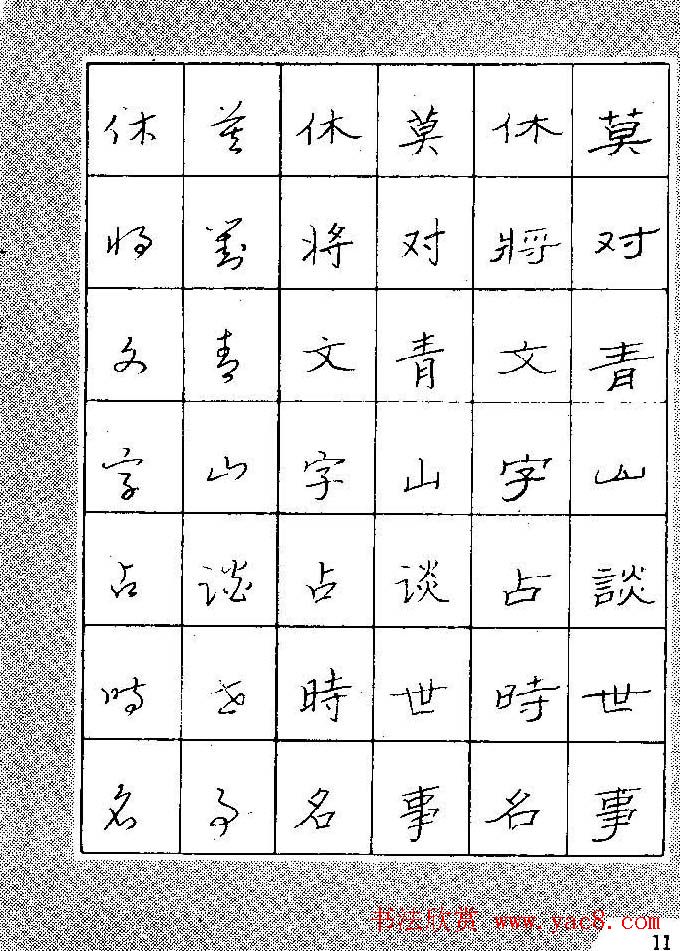 莫对青山談世事
休將文字占時名
莫对青山谈世事
休将文字占時名
莫對青山谈世事
休将文字占时名
书法欣赏 www.yac8.com
11